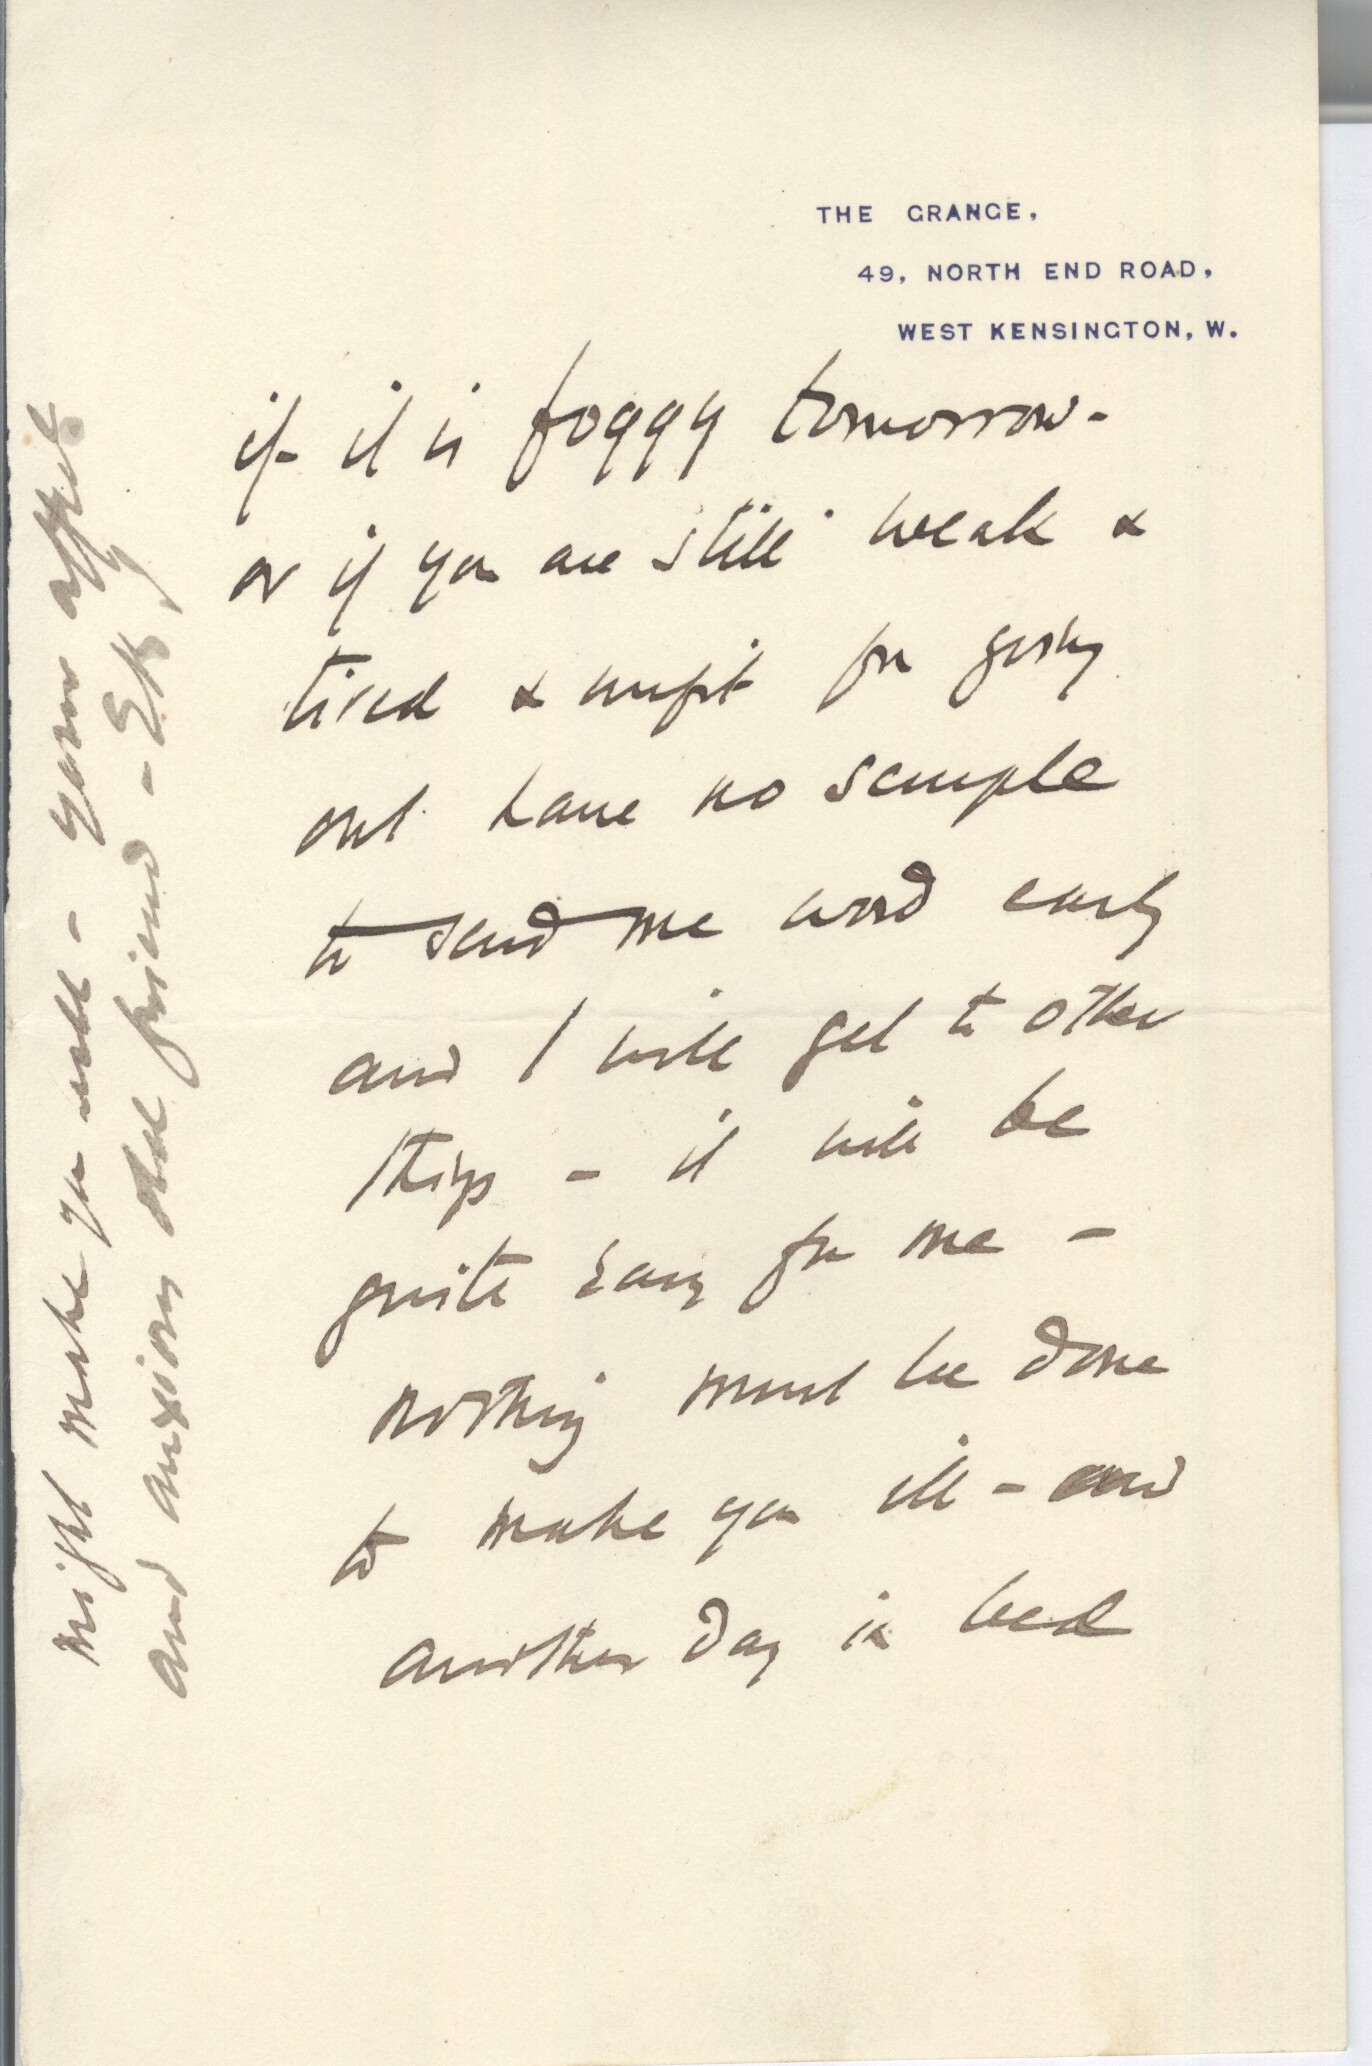 THE GRANGE,
49, NORTH END ROAD,
WEST KENSINGTON, W.
if it is foggy tomorrow -
or if you are still weak &
tired & unfit for going
out have no scruple
to send me word early
and I will get to other
things - it will be
quite easy for me -
nothing must be done
to make you ill - and
another day in bed
might make you well - your affte
and anxious old friend - EBJ